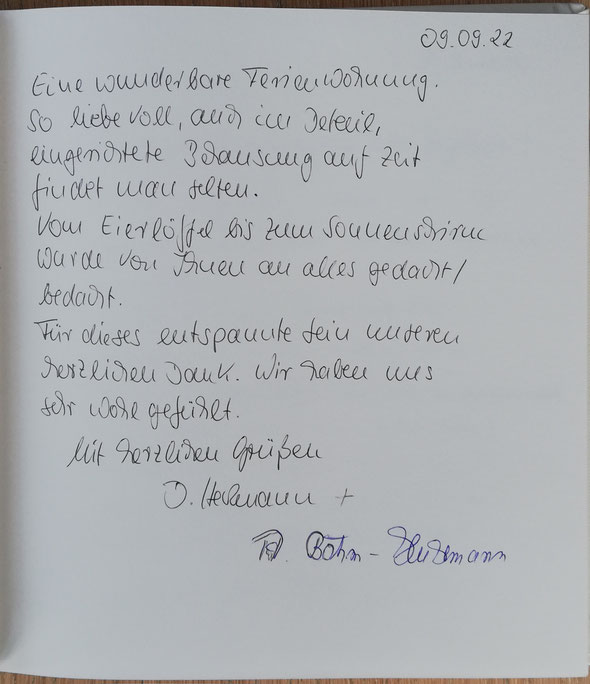 09.09.22
Eine wunderbare Ferienwohnung.
So liebevoll, auch im Deteil,
eingerichtete Behausung auf Zeit
findet man selten.
Vom Eierlöffel bis zum Sonnenschirm
wurde von Ihnen an alles gedacht/
bedacht.
Für dieses entspannte Sein unseren
herzlichen Dank. Wir haben uns
sehr wohl gefühlt.
Mit herzlichen Grüßen
+
Böhm -